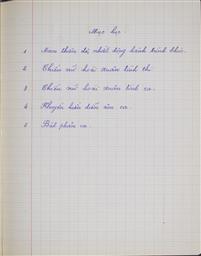 Mục lục.
1 Nam thiên đệ nhất động hành trình thi.
2 Thiếu nữ hoài xuân tình thi
3 Thiếu nữ hoài xuân tình ca.
4 Khuyến hiếu diễn âm ca.
5 Bát phản ca.